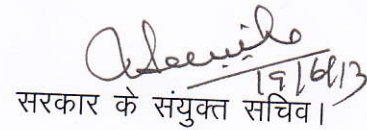 19/6/13
सरकार के संयुक्त सचिव।